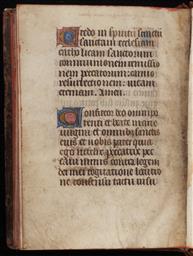 Credo in spiritu sancti
sanctam ecclesiam
catholicam sanctorum
communionem remissio
nem peccatorum carnis
resurrectionem vitam
eternam Amen
Confiteor deo omnipo
tenti et beate marie
virgini et omnibus sanctis
eius et vobis pater quia
ego
peccavi nimis contra legem
dei mei cogitatione locutio
ne consensu tactu visu